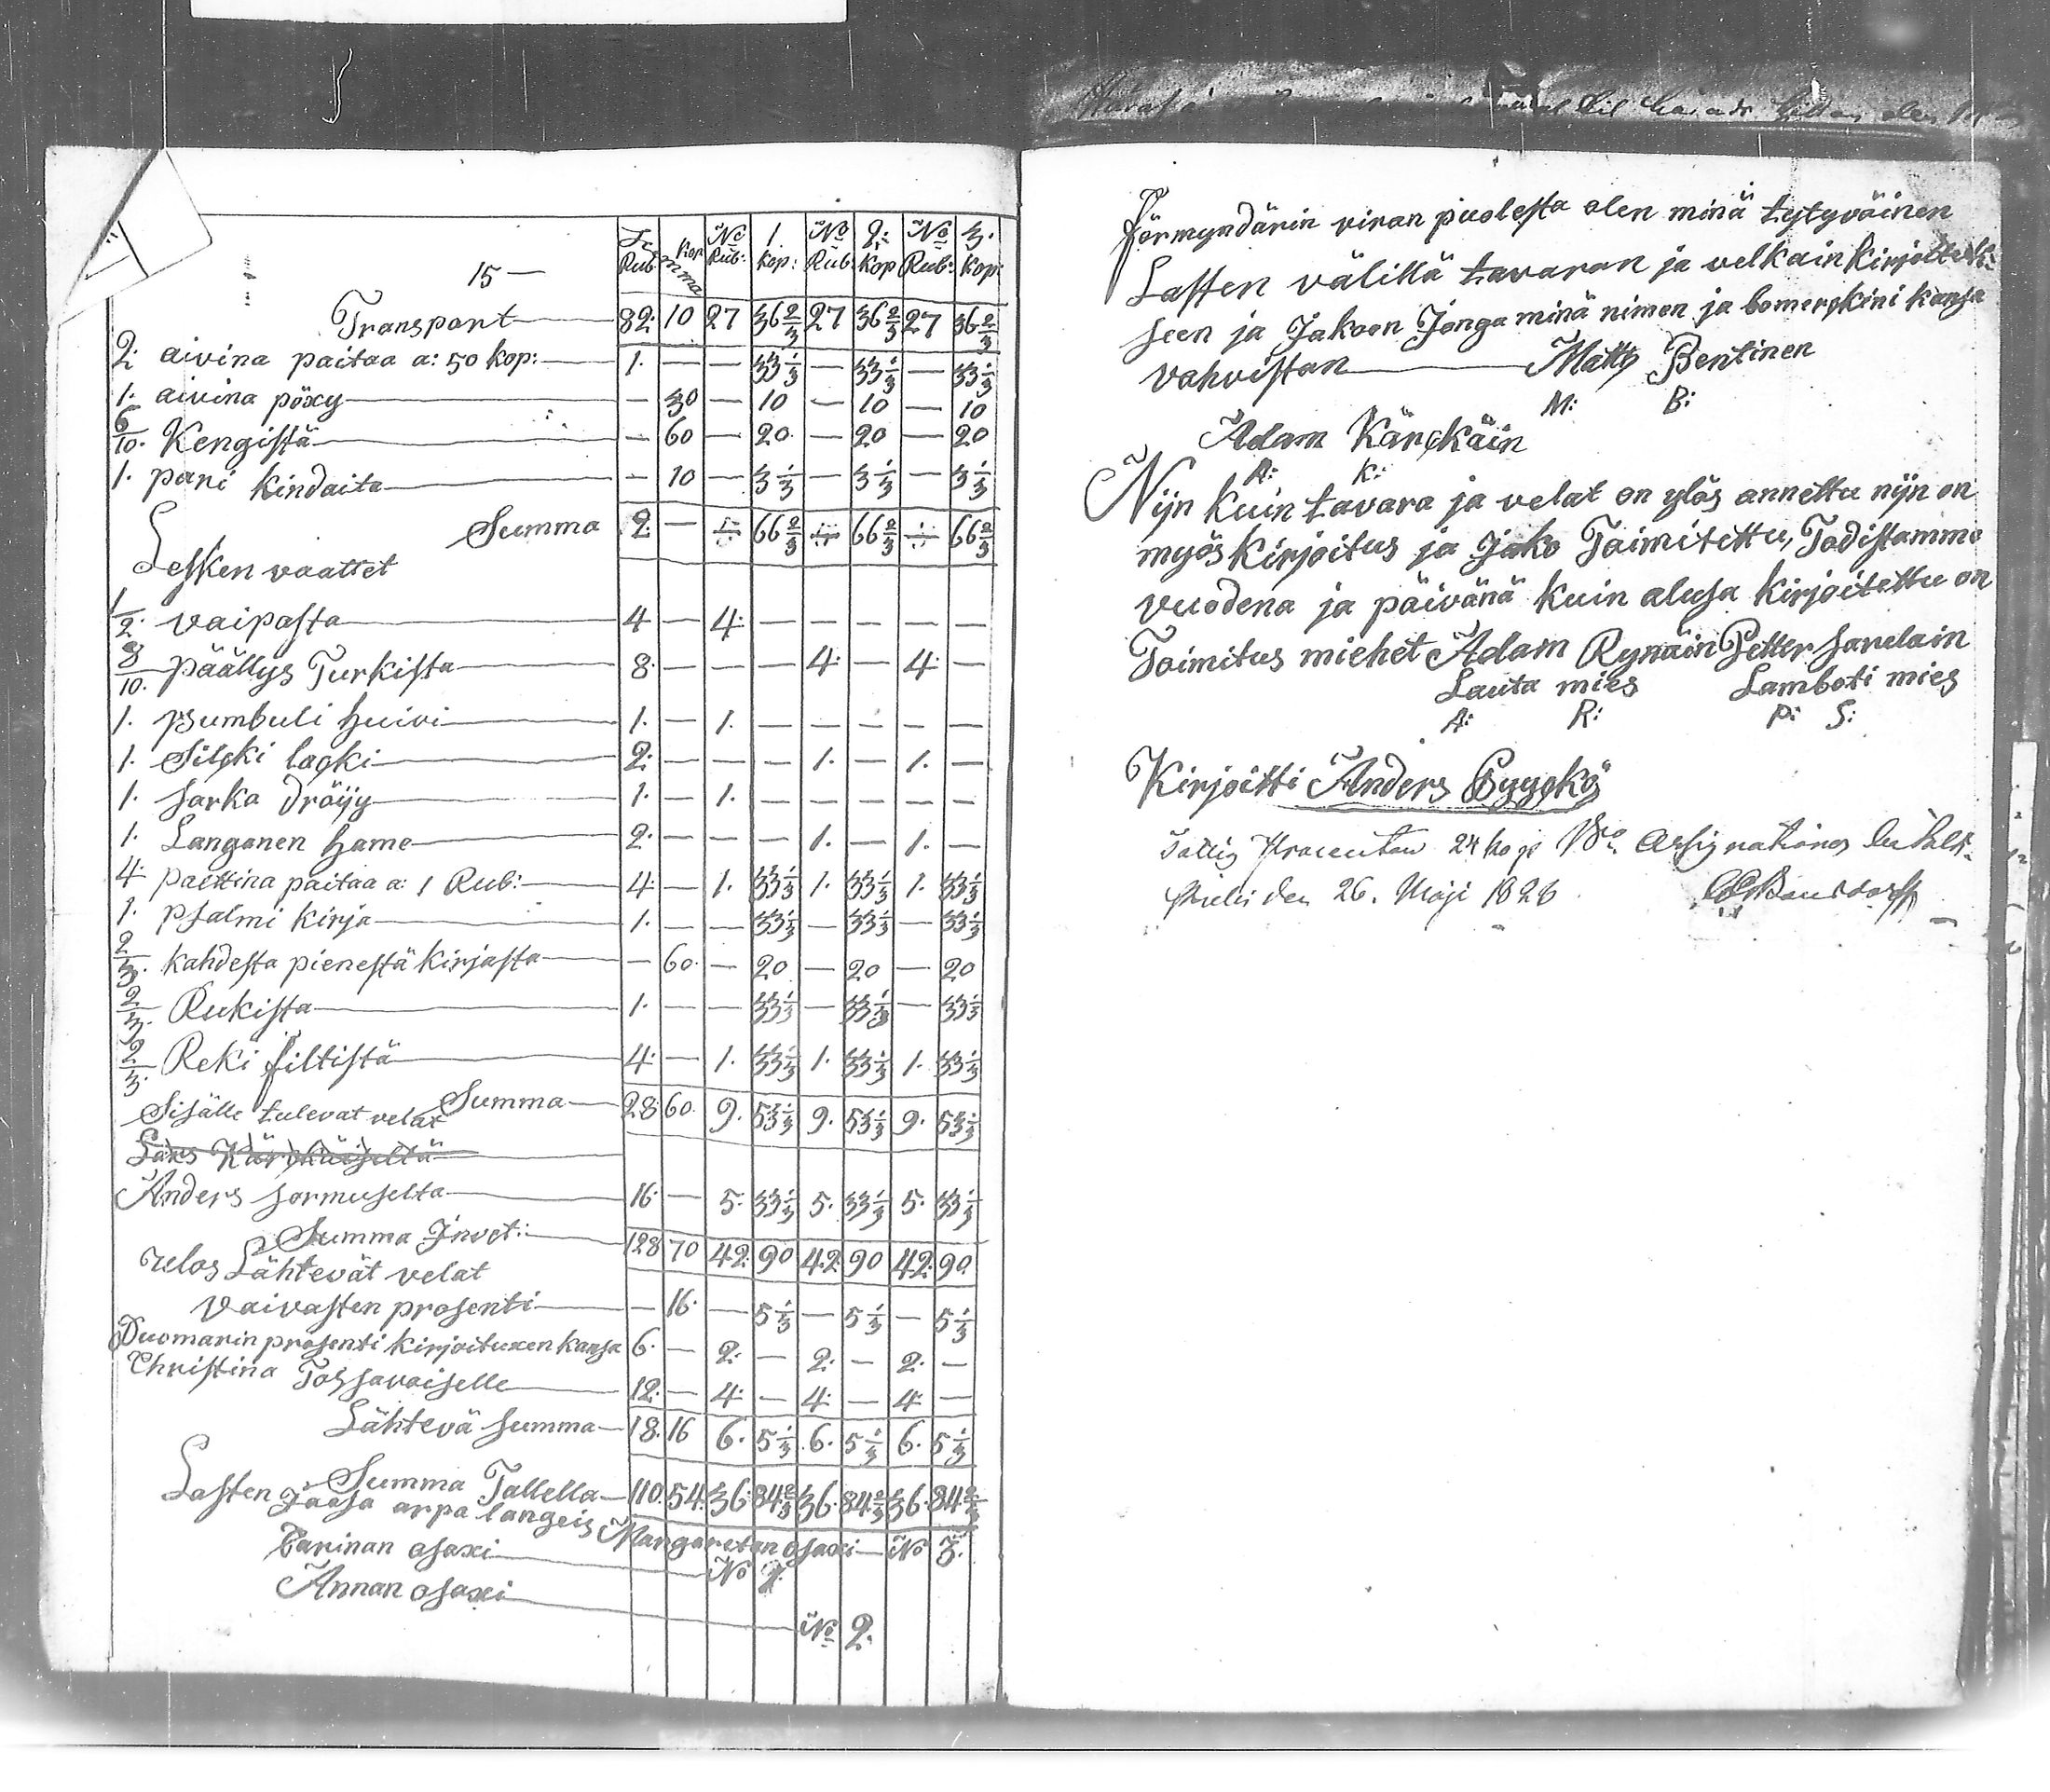 15 —
Su Rub: | mma kop | No Rub: | 1. kop: | No Rub: | 2: kop | No Rub: | 3. kop:
Transport — 82: 10 27 36 2/3 27 36 2/3 27 36 2/3
2: aivina paitaa a: 50 kop: — 1. — — 33 1/3 — 33 1/3 — 33 1/3
1. aivina pöxy — — 30 — 10 — 10 — 10
6/10. Kengistä — — 60 — 20 — 20 — 20
1. pari kindaita — — 10 — 3 1/3 — 3 1/3 — 3 1/3
Summa 2: — ÷ 66 2/3 ÷ 66 2/3 ÷ 66 2/3
Lesken vaattet
1/2. vaipasta — 4 — 4: — — — — —
8/10. päällys Turkista — 8. — — — 4: — 4: —
1. pumbuli huivi — 1. — 1. — — — — —
1. Silcki lacki — 2: — — — 1. — 1. —
1. sarka dröijy — 1. — 1. — — — — —
1. Langanen hame — 2: — — — 1. — 1. —
4: paittina paitaa a: 1 Rub: — 4: — 1. 33 1/3 1. 33 1/3 1. 33 1/3
1. psalmi kirja — 1. — — 33 1/3 — 33 1/3 — 33 1/3
2/3. kahdesta pienestä kirjasta — — 60. — 20 — 20 — 20
2/3. Rukista — 1. — — 33 1/3 — 33 1/3 — 33 1/3
2/3. Reki filtistä — 4: — 1. 33 1/3 1. 33 1/3 1. 33 1/3
Summa — 28 60. 9. 53 1/3 9. 53 1/3 9. 53 1/3
Sisälle tulevat velat
Lars Kärckäiseltä
Anders sormuselta — 16. — 5. 33 1/3 5. 33 1/3 5. 33 1/3
Summa Invet: — 128 70 42: 90 42: 90 42: 90.
Ulos Lähtevät velat
Vaivasten prosenti — — 16. — 5 1/3 — 5 1/3 — 5 1/3
Duomarin prosenti kirjoituxen kansa 6. — 2: — 2: — 2: —
Christina Tossavaiselle — 12: — 4: — 4: — 4: —
Lähtevä summa — 18. 16 6. 5 1/3 6. 5 1/3 6. 5 1/3
Summa Tallella — 110. 54. 36. 84 2/3 36. 84 2/3 36. 84 2/3
Lasten Jaosa arpa langeis
Margaretan osaxi — No 3.
Carinan osaxi — No 1.
Annan osaxi — No 2.
förmyndärin viran puolesta olen minä tytyväinen
Lasten välillä tavaran ja velkain kirjoituk=
seen ja Jakoon Jonga minä nimen ja bomerckini kansa
vahvistan — Matts Bentinen
M: B:
Adam Kärckäin
A: K:
Nijn kuin tavara ja velat on ylös annettu nijn on
myös kirjoitus ja Jako Toimitettu, Todistamme
vuodena ja päivänä kuin alusa kirjoitettu on
Toimitus miehet Adam Rynäin Petter Savelain
Lauta mies Lamboti mies
A: R: P: S:
Kirjoitti Anders
24 kop
den 26. Maji 1826